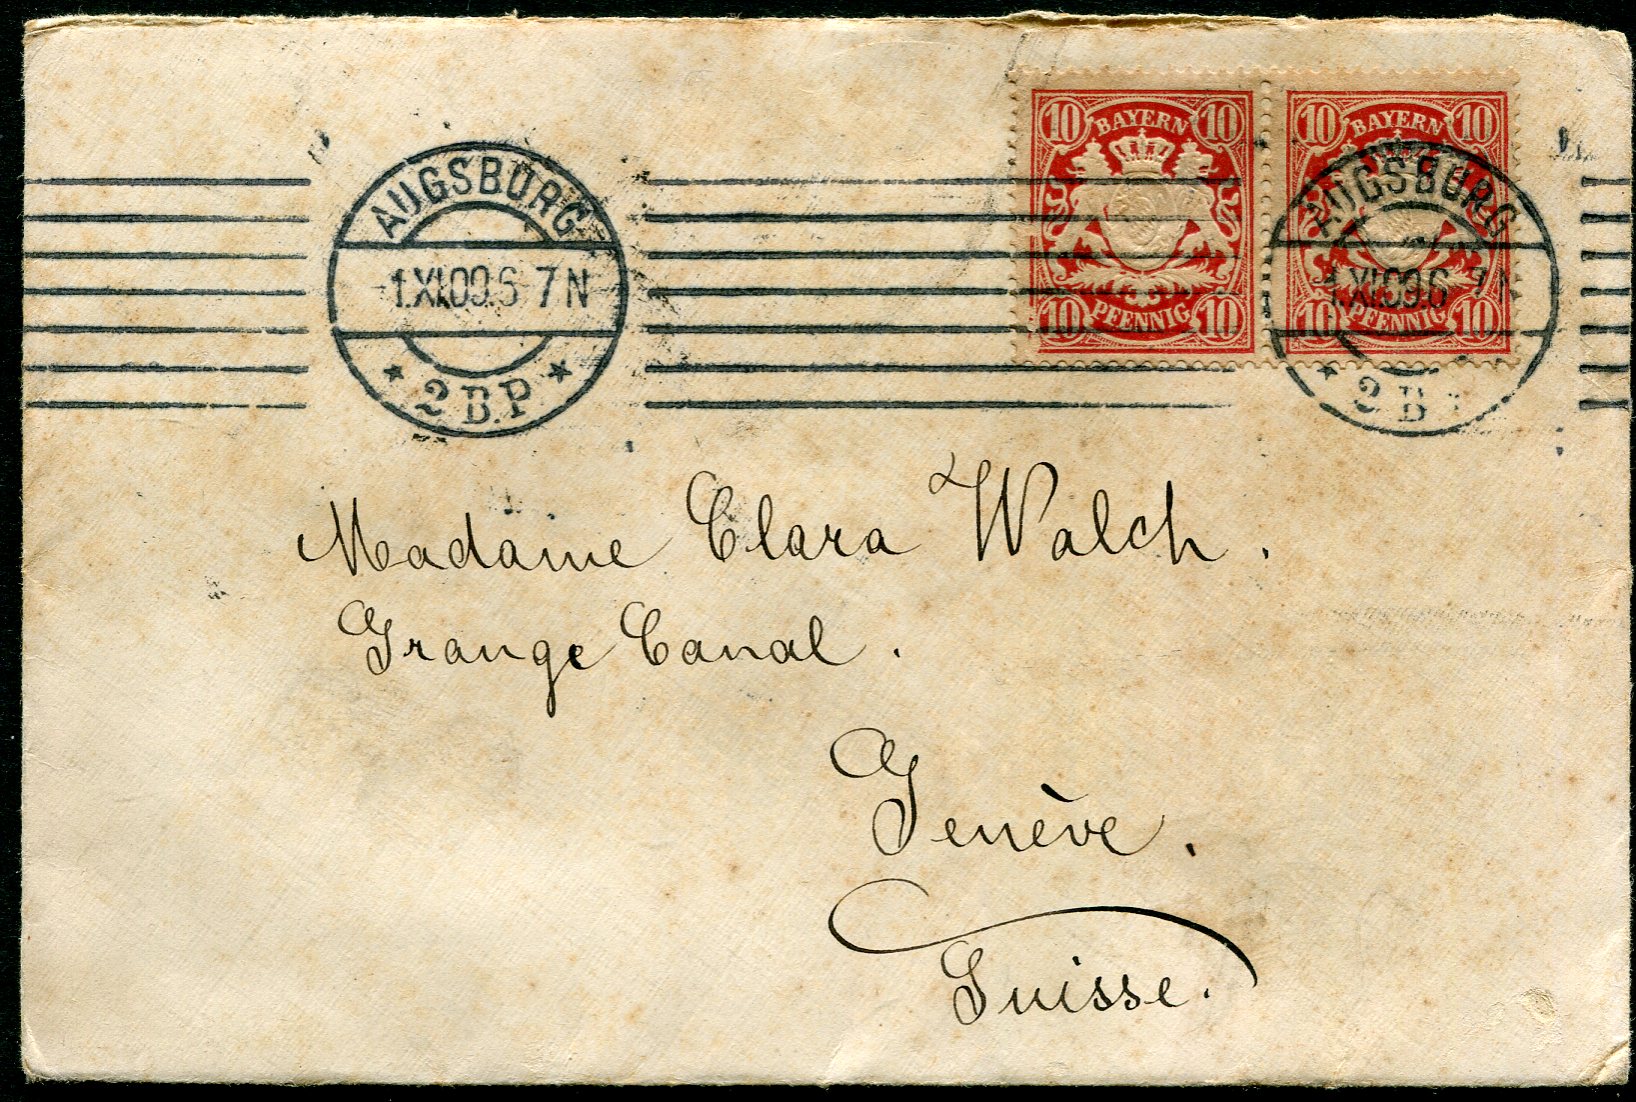 AUGSBURG
1.XI.09.6-7N
* 2 B.P. *
10 BAYERN 10
10 PFENNIG 10
10 BAYERN 10
10 PFENNIG 10
AUGSBURG
1.XI.09.6
* 2 B
Madame Clara Walch.
Grange Canal.
Genève.
Suisse.